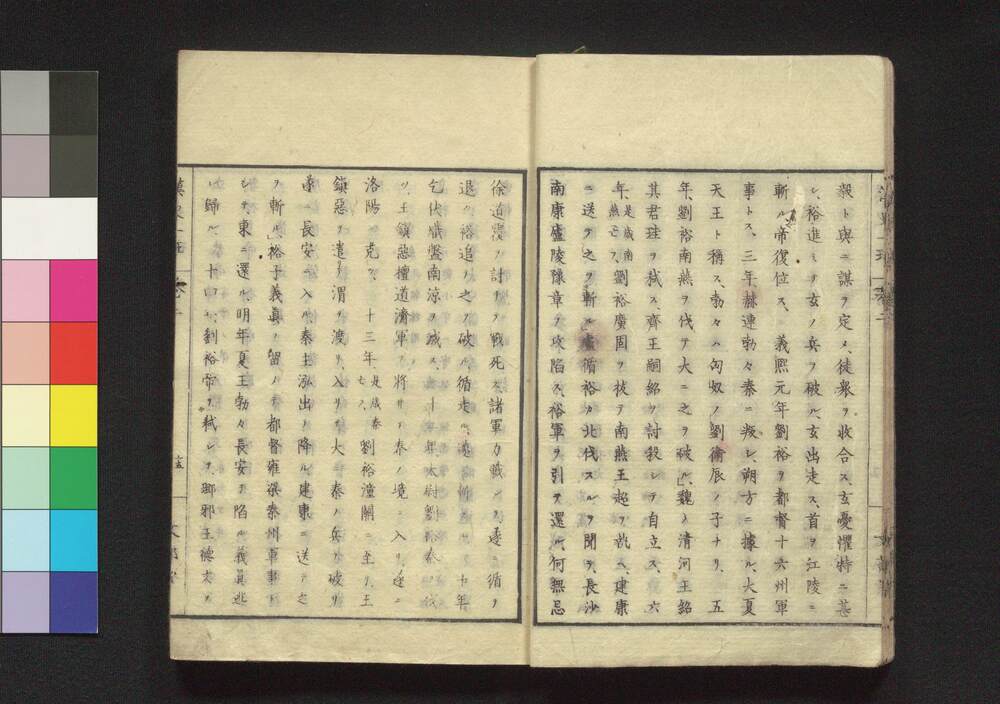 毅ト與ニ謀ヲ定メ、徒衆ヲ收合ス、玄憂懼特ニ甚
シ、裕進ミテ玄ノ兵ヲ破ル、玄出走ス、首ヲ江陵ニ
斬ル、帝復位ス、義熙元年劉裕ヲ都督十六州軍
事トス、三年赫連勃々秦ニ叛シ、朔方ニ據ル、大夏
天王ト稱ス、勃々ハ匈奴ノ劉衞辰ノ子ナリ、五
年、劉裕南燕ヲ伐テ大ニ之ヲ破ル、魏ノ清河王紹
其君珪ヲ弒ス、齊王嗣紹ヲ討殺シテ自立ス、六
年、是歳南燕亡劉裕廣固ヲ拔テ南燕王超ヲ執ヘ、建康
ニ送テ之ヲ斬ル、盧循裕カ北伐スルヲ聞テ、長沙
南康盧陵豫章ヲ攻陷ス、裕軍ヲ引テ還ル、何無忌
徐道覆ヲ討テ戰死ス、諸軍力戰シテ遂ニ循ヲ
退ク、裕追テ之ヲ破ル、循走ル、七年
乞伏熾盤南涼ヲ滅ス、十二年太尉劉裕秦ヲ伐
ツ、王鎭惡檀道濟軍ヲ將ヰテ秦ノ境ニ入リ、遂ニ
洛陽ニ克ツ、十三年、是歳秦亡フ、劉裕潼關ニ至リ、王
鎭惡ヲ遣テ渭ヲ渡リ、入リテ大ニ秦ノ兵ヲ破リ
長安ニ入ル、秦主泓出テ降ル、建康ニ送テ之
ヲ斬ル、裕子義眞ヲ留メテ都督雍梁秦州軍事
シテ、東ニ還ル、明年夏王勃々長安ヲ陷ル、義眞逃
歸ル、十四年劉裕帝ヲ弒シテ、瑯邪王德文ヲ